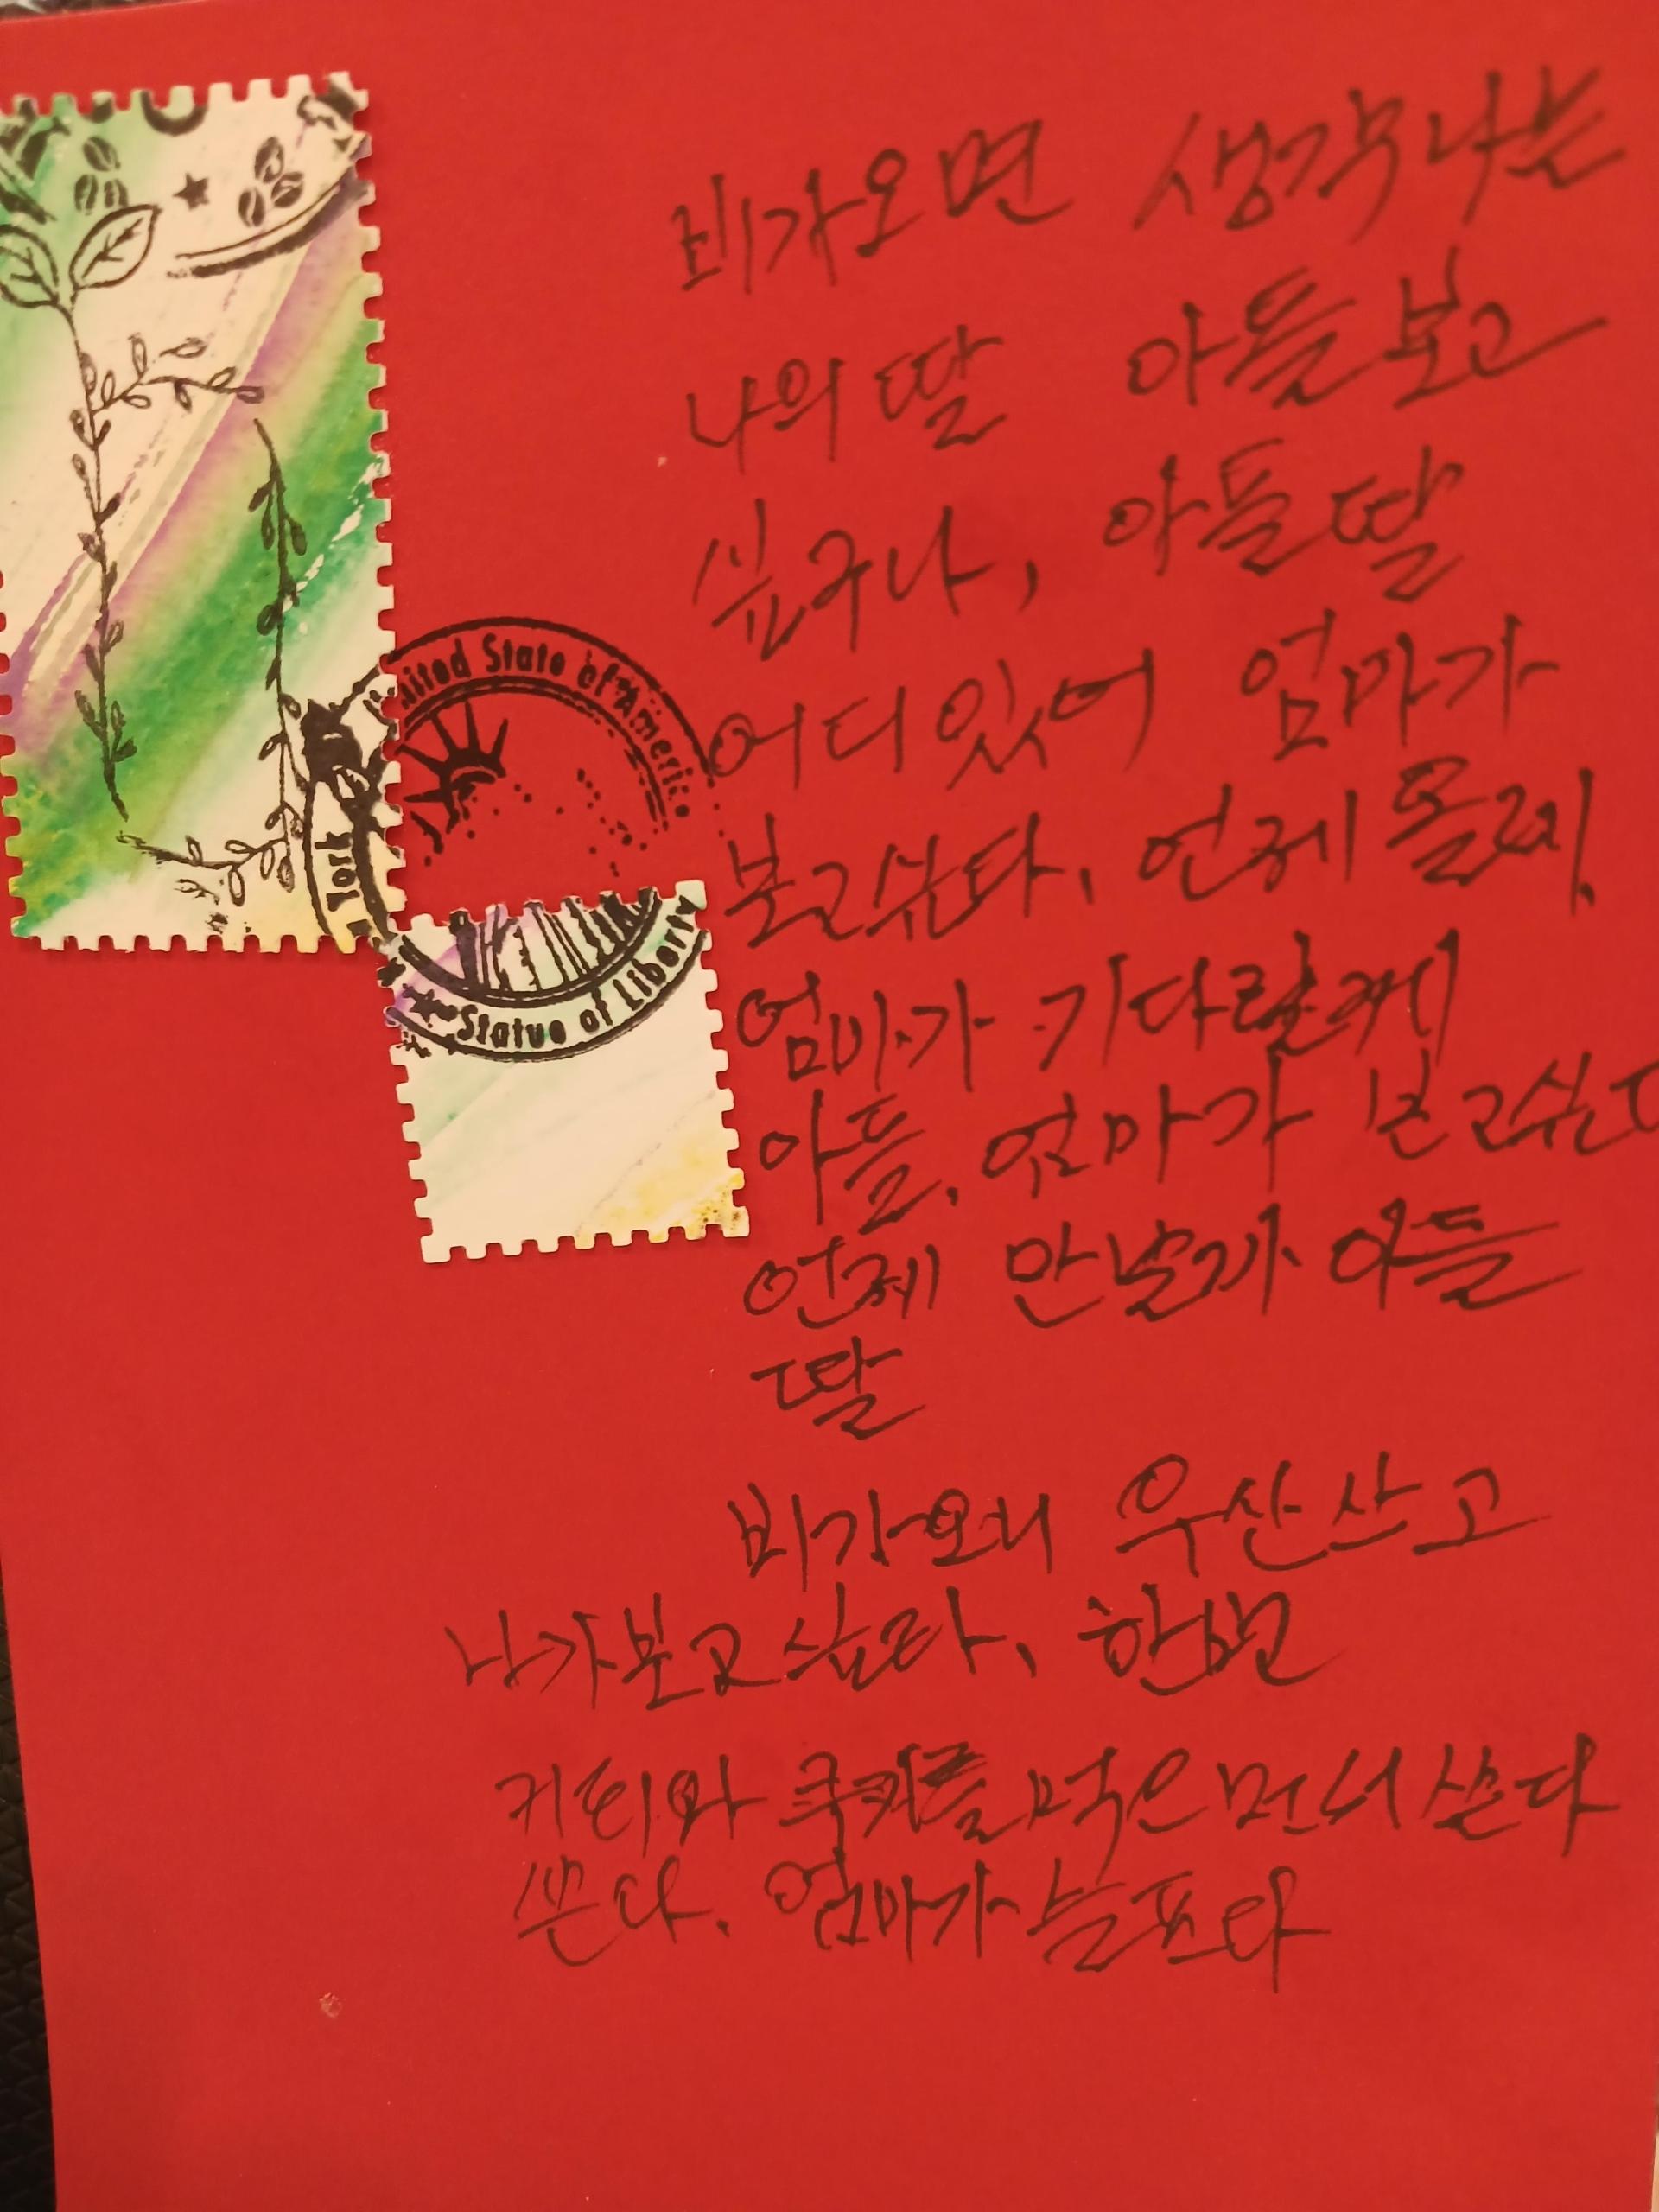 비가오면 생각나는
나의 딸 아들 보고
싶구나, 아들 딸
어디 있어 엄마가
보고싶다, 언제 올래,
엄마가 기다릴께
아들, 엄마가 보고싶다
언제 만날까 아들
딸
비가오니 우산 쓰고
나가보고 싶다, 한번
커피와 쿠키를 먹으면서 쓴다
쓴다. 엄마가 슬프다
United State of America
York
Statue of Liberty